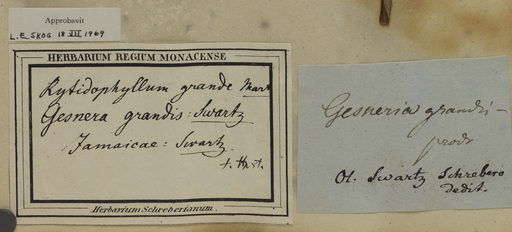 Approbavit
L.E. SKOG 18 XII 1969
HERBARIUM REGIUM MONACENSE
Rytidophyllum grande Mart
Gesnera grandis: Swartz
Jamaicae: Swartz.
Herbarium Schreberianum.
Gesneria grandis
prodr
Ol. Swartz Schrebero
dedit.